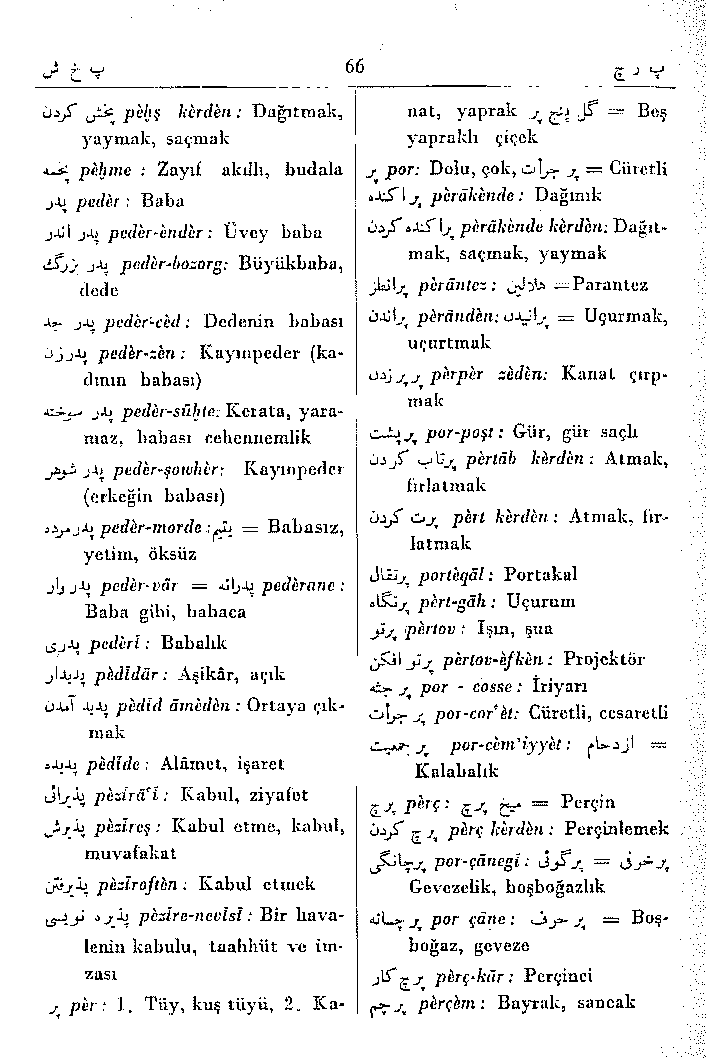 پ خ ش 66 پ ر چ
پخش کردن pèḫş kèrdèn : Dağıtmak,
yaymak, saçmak
پخمه pèḫme : Zayıf akıllı, budala
پدر peder : Baba
پدر اندر pedèr-ènder : Üvey baba
پدر بزرگ pedèr-bozorg: Büyükbaba,
dede
پدر جد pedèr-cèd : Dedenin babası
پدرزن pedèr-zèn : Kayınpeder (ka-
dının babası)
پدر سوخته pedèr-sûhte: Kerata, yara-
maz, babası cehennemlik
پدر شوهر pedèr-şowhèr: Kayınpeder
(erkeğin babası)
پدرمرده pedèr-morde : یتیم = Babasız,
yetim, öksüz
پدر وار pedèr-vâr = پدرانه pedèrane :
Baba gibi, babaca
پدری pedèrî : Babalık
پدیدار pèdîdâr : Aşikâr, açık
پدید آمدن pèdîd âmèdèn : Ortaya çık-
mak
پدیده pèdîde : Alâmet, işaret
پذیرائی pèzîrâ'î : Kabul, ziyafet
پذیرش pèzîreş : Kabul etme, kabul,
muvafakat
پذیرفتن pèzîroftèn : Kabul etmek
پذیره نویسی pèzîre-nevîsî : Bir hava-
lenin kabulu, taahhüt ve im-
zası
پر pèr : 1. Tüy, kuş tüyü, 2. Ka-
nat, yaprak گل پنج پر = Beş
yapraklı çiçek
پر por: Dolu, çok, پر جرأت = Cüretli
پراکنده pèrâkènde : Dağınık
پراکنده کردن pèrâkènde kèrdèn: Dağıt-
mak, saçmak, yaymak
پرانتز pèrântez : هلالین = Parantez
پراندن pèrândèn: پرانیدن = Uçurmak,
uçurtmak
پرپر زدن pèrpèr zèdèn: Kanat çırp-
mak
پرپشت por-poşt : Gür, gür saçlı
پرتاب کردن pèrtâb kèrdèn : Atmak,
fırlatmak
پرت کردن pèrt kèrdèn : Atmak, fır-
latmak
پرتقال porteqâl : Portakal
پرتگاه pèrt-gâh : Uçurum
پرتو pèrtov : Işın, şua
پرتو افکن pèrtov-èfkèn : Projektör
پر جثه por - cosse : İriyarı
پر جرأت por-cor'èt: Cüretli, cesaretli
پر جمعیت por-cèm'iyyèt : ازدحام =
Kalabalık
پرچ pèrç : میخ پرچ = Perçin
پرچ کردن pèrç kèrdèn : Perçinlemek
پرچانگی por-çânegi : پرگوئی = پرحرفی
Gevezelik, boşboğazlık
پر چانه por çâne : پر حرف = Boş-
boğaz, geveze
پرچ کار pèrç-kâr : Perçinci
پرچم pèrçèm : Bayrak, sancak